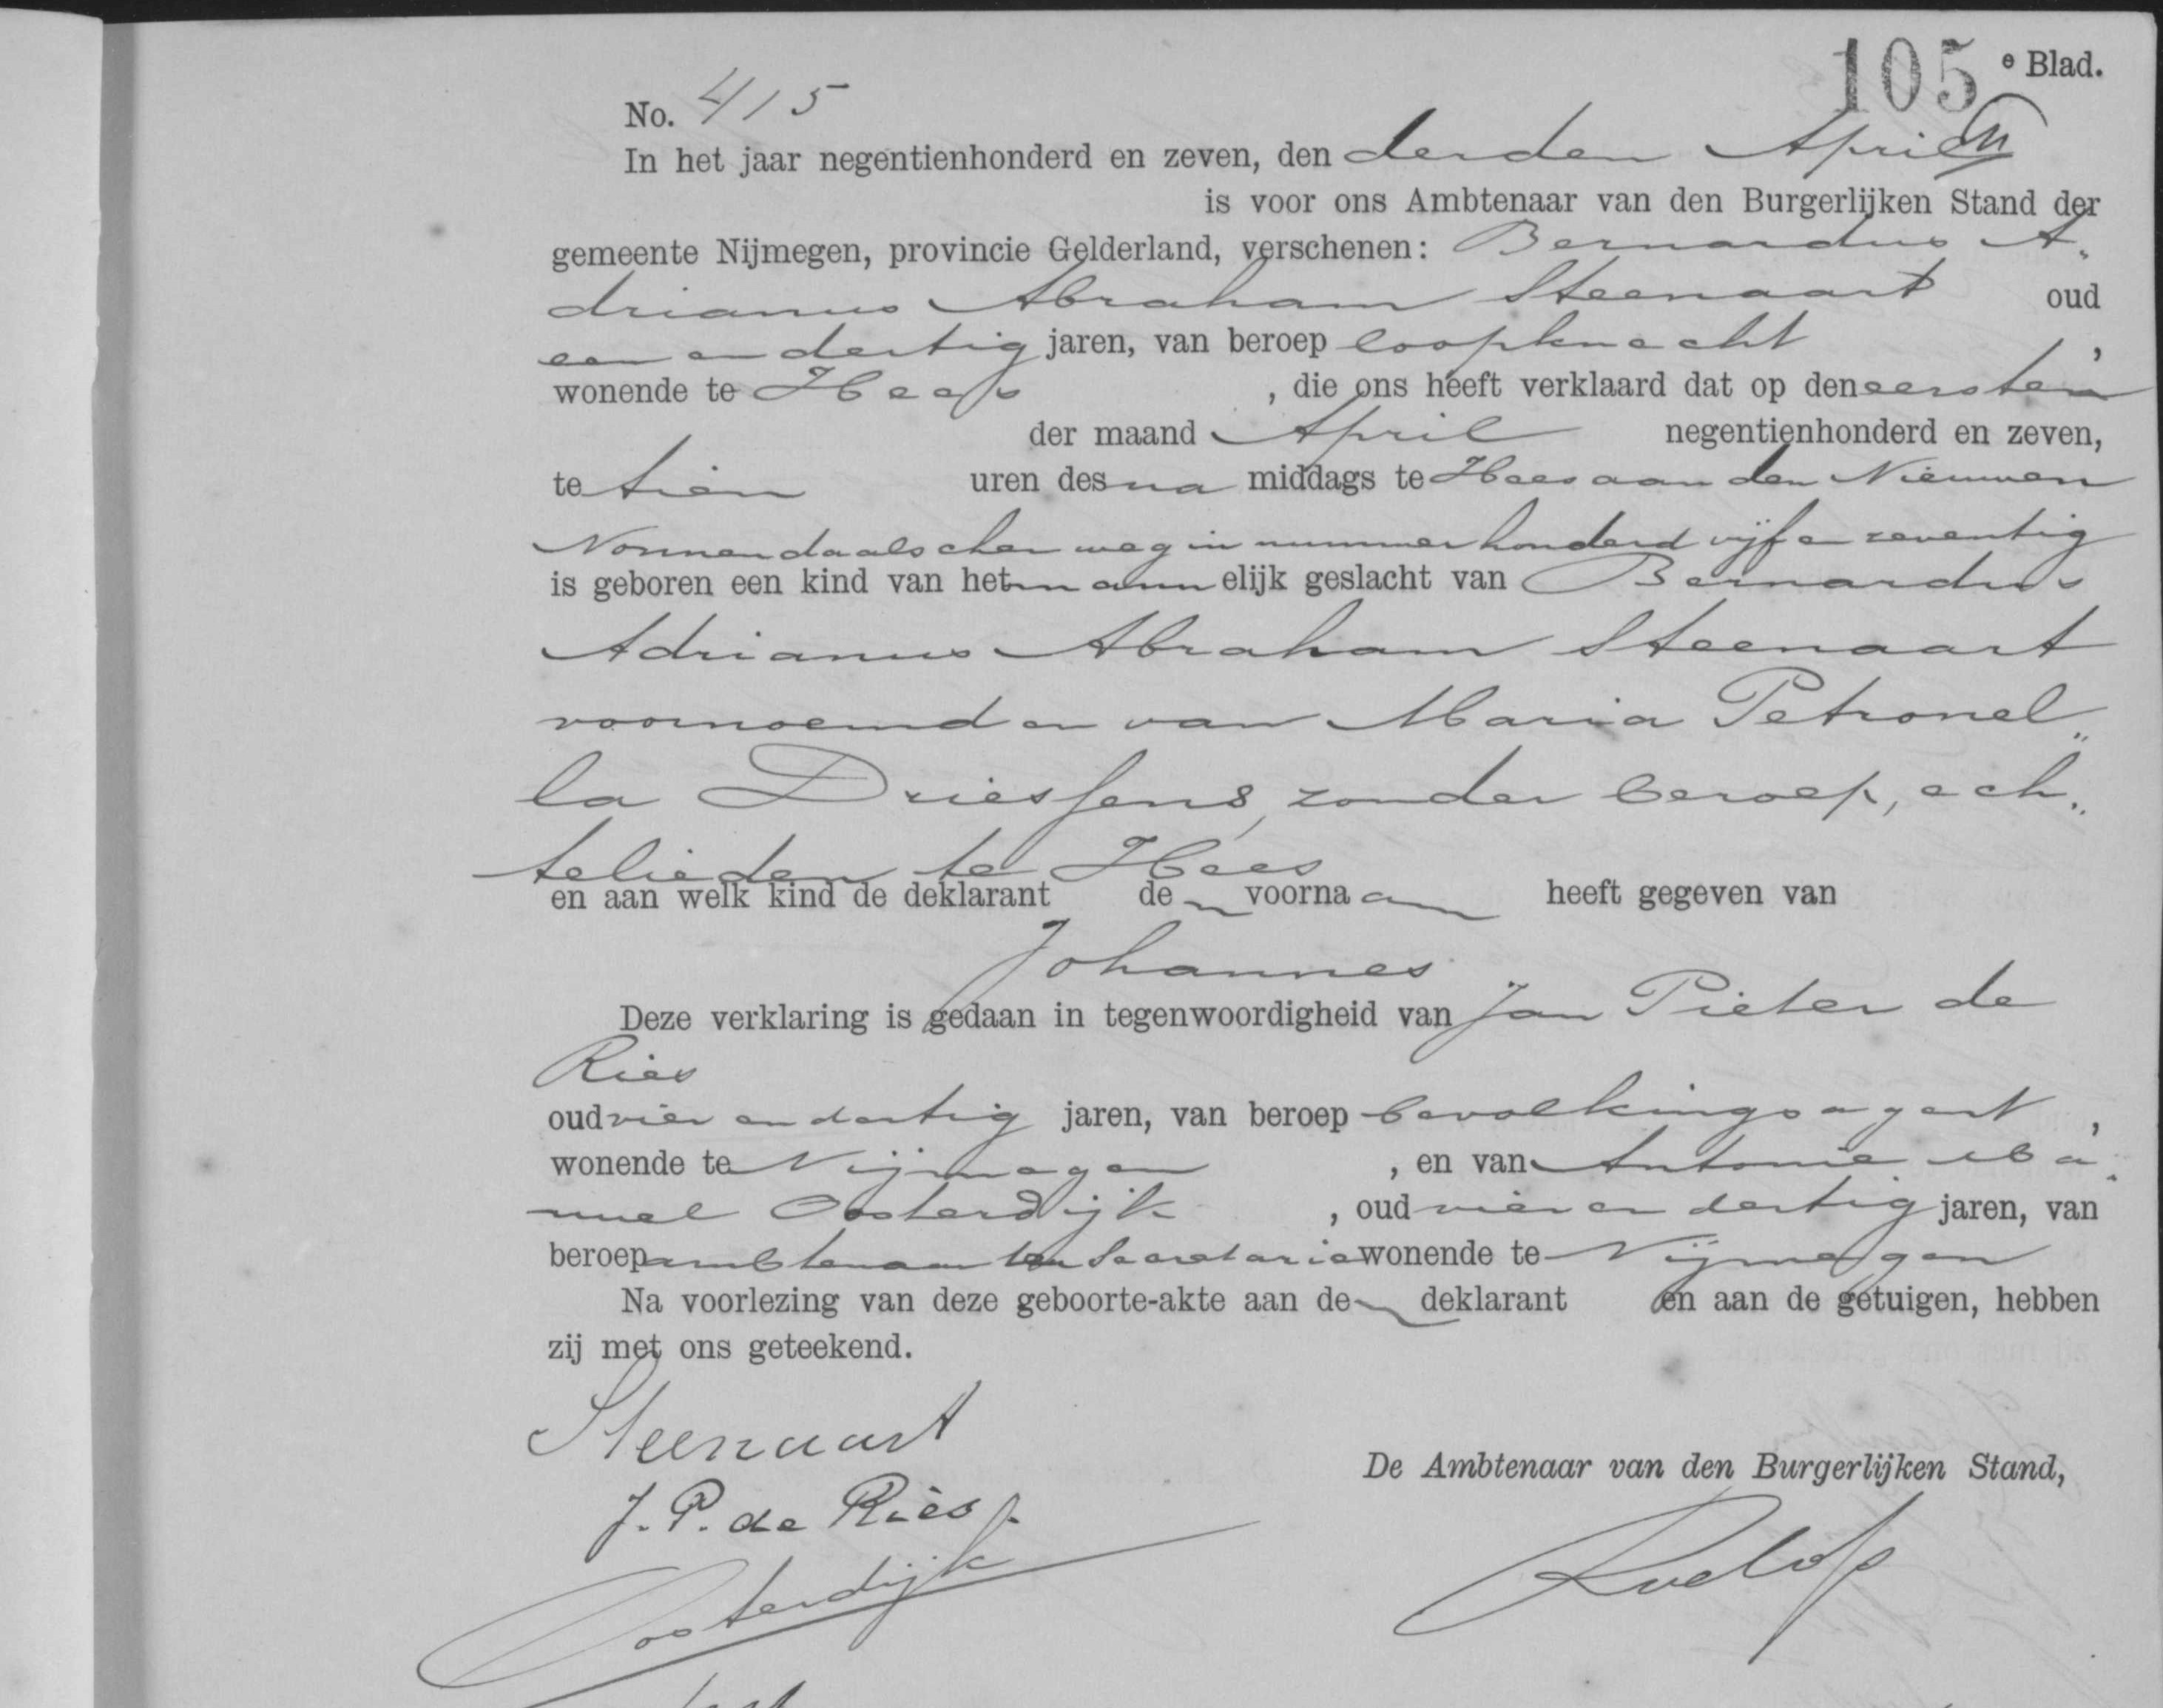 105e Blad.
No. 415
In het jaar negentienhonderd en zeven, den derden April
is voor ons Ambtenaar van den Burgerlijken Stand der
gemeente Nijmegen, provincie Gelderland, verschenen: Bernardus A„
drianus Abraham Steenaart oud
een en dertig jaren, van beroep loopknecht,
wonende te Hees, die ons heeft verklaard dat op den eersten
der maand April negentienhonderd en zeven,
te tien uren des na middags te Hees aan den Nieuwen
Nonnendaalschen weg in nummer honderd vijf en zeventig
is geboren een kind van het mannelijk geslacht van Bernardus
Adrianus Abraham Steenaart
voornoemd en van Maria Petronel„
la Driessens, zonder beroep, ech„
telieden te Hees
en aan welk kind de deklarant de voornaam heeft gegeven van
Johannes
Deze verklaring is gedaan in tegenwoordigheid van Jan Pieter de
Ries
oud vier en dertig jaren, van beroep bevolkingsagent,
wonende te Nijmegen, en van Antonie Ma„
nuel Oosterdijk, oud vier en dertig jaren, van
beroep ambtenaar ter Secretarie wonende te Nijmegen
Na voorlezing van deze geboorte-akte aan de deklarant en aan de getuigen, hebben
zij met ons geteekend.
Steenaart
De Ambtenaar van den Burgerlijken Stand,
J. P. de Ries
Oosterdijk